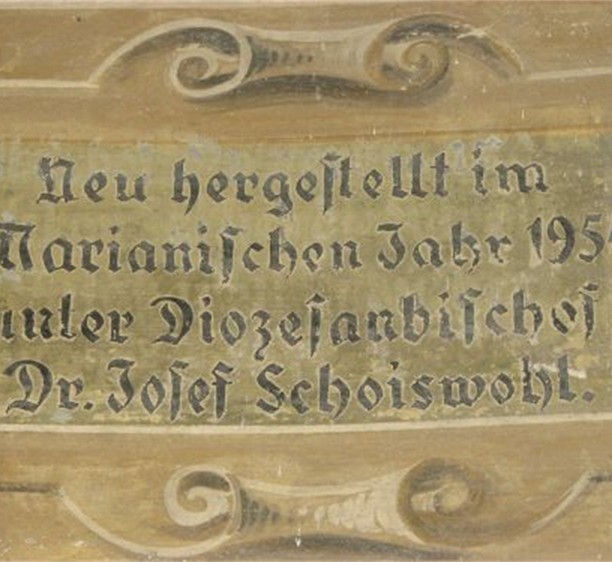 Neu hergestellt im
Marianischen Jahr 195
unter Diözesanbischof
Dr. Josef Schoiswohl.